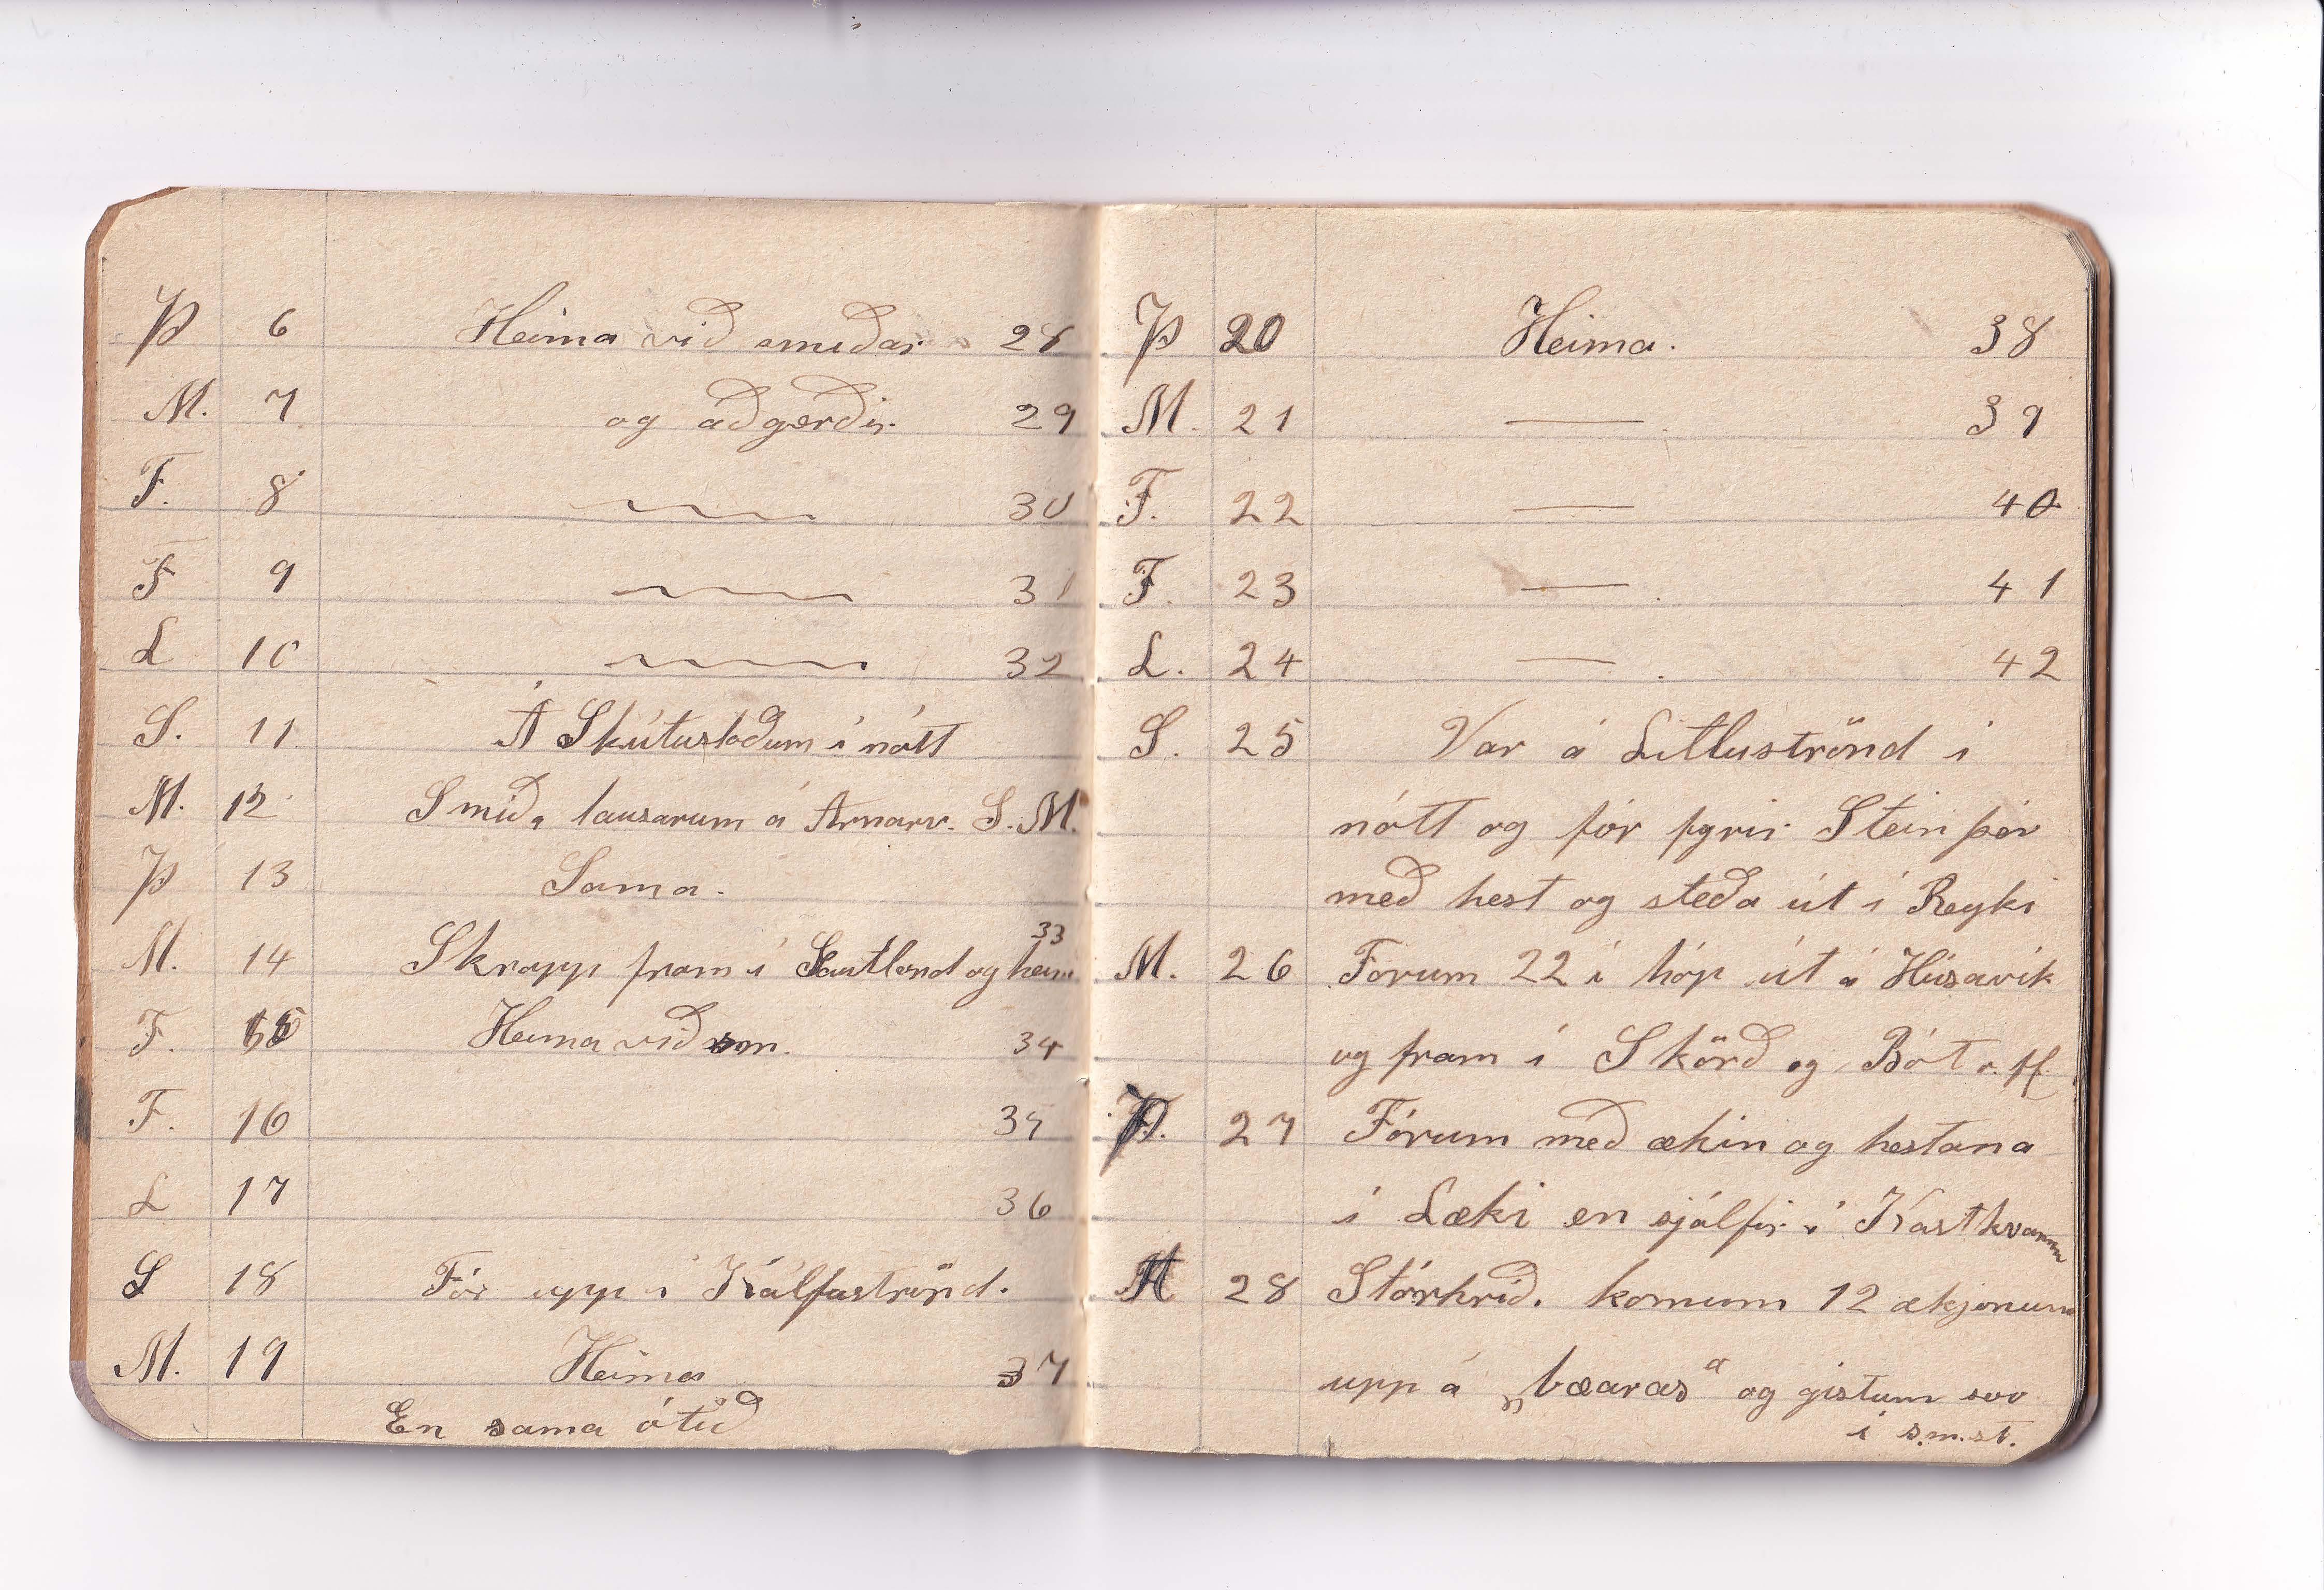 Þ 6 Heima við smíðar 28
M. 7 og aðgerðir. 29
F. 8 30
F 9 31
L 10 32
S. 11 Á Skútustöðum í nótt
M. 12 Smíða lausarum á Arnarv. S.M.
Þ 13 Sama.
M. 14 Skrapp fram í Sautlond og heim 33
F. 15 Heima við sm. 34
F. 16 35
L 17 36
S 18 Fór upp í Kálfaströnd.
M. 19 Heima 37
En sama ótíð
Þ 20 Heima. 38
M. 21 — 39
F. 22 — 40
F. 23 — 41
L. 24 — 42
S. 25 Var á Litluströnd í
nótt og fór fyrir Steinþór
með hest og sleða út í Reyki
M. 26 Fórum 22 í hóp út á Húsavík
og fram í Skörð og Bót o.fl.
Þ. 27 Fórum með ækin og hestana
í Læki en sjálfir í Kasthvamm
M 28 Stórhríð. komum 12 ækjonum
upp á „bæaras“ og gistum svo
í s.m.st.